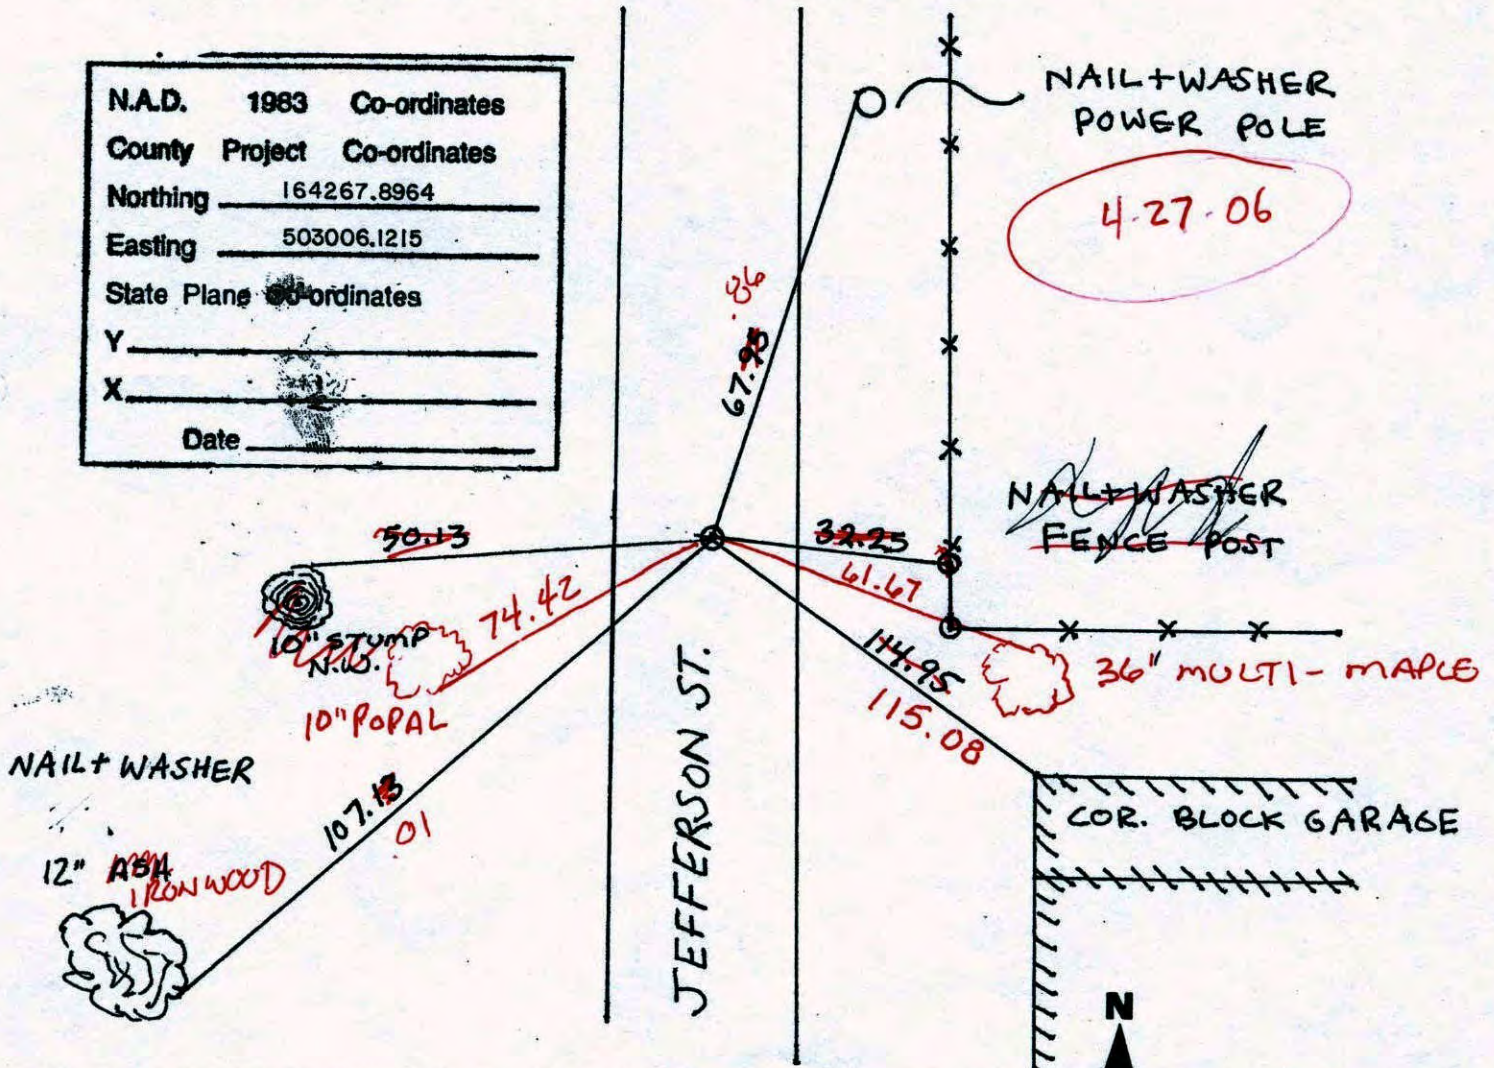 N.A.D. 1983 Co-ordinates
County Project Co-ordinates
Northing 164267.8964
Easting 503006.1215
State Plane Co-ordinates
Y
X
Date
NAIL+WASHER
POWER POLE
4-27-06
.86
67.95
NAIL+WASHER
FENCE POST
50.13
32.25
61.67
74.42
10" STUMP
N.W.
10" POPAL
114.95
115.08
36" MULTI-MAPLE
JEFFERSON ST.
NAIL+ WASHER
107.13
.01
12" ASH
IRONWOOD
COR. BLOCK GARAGE
N